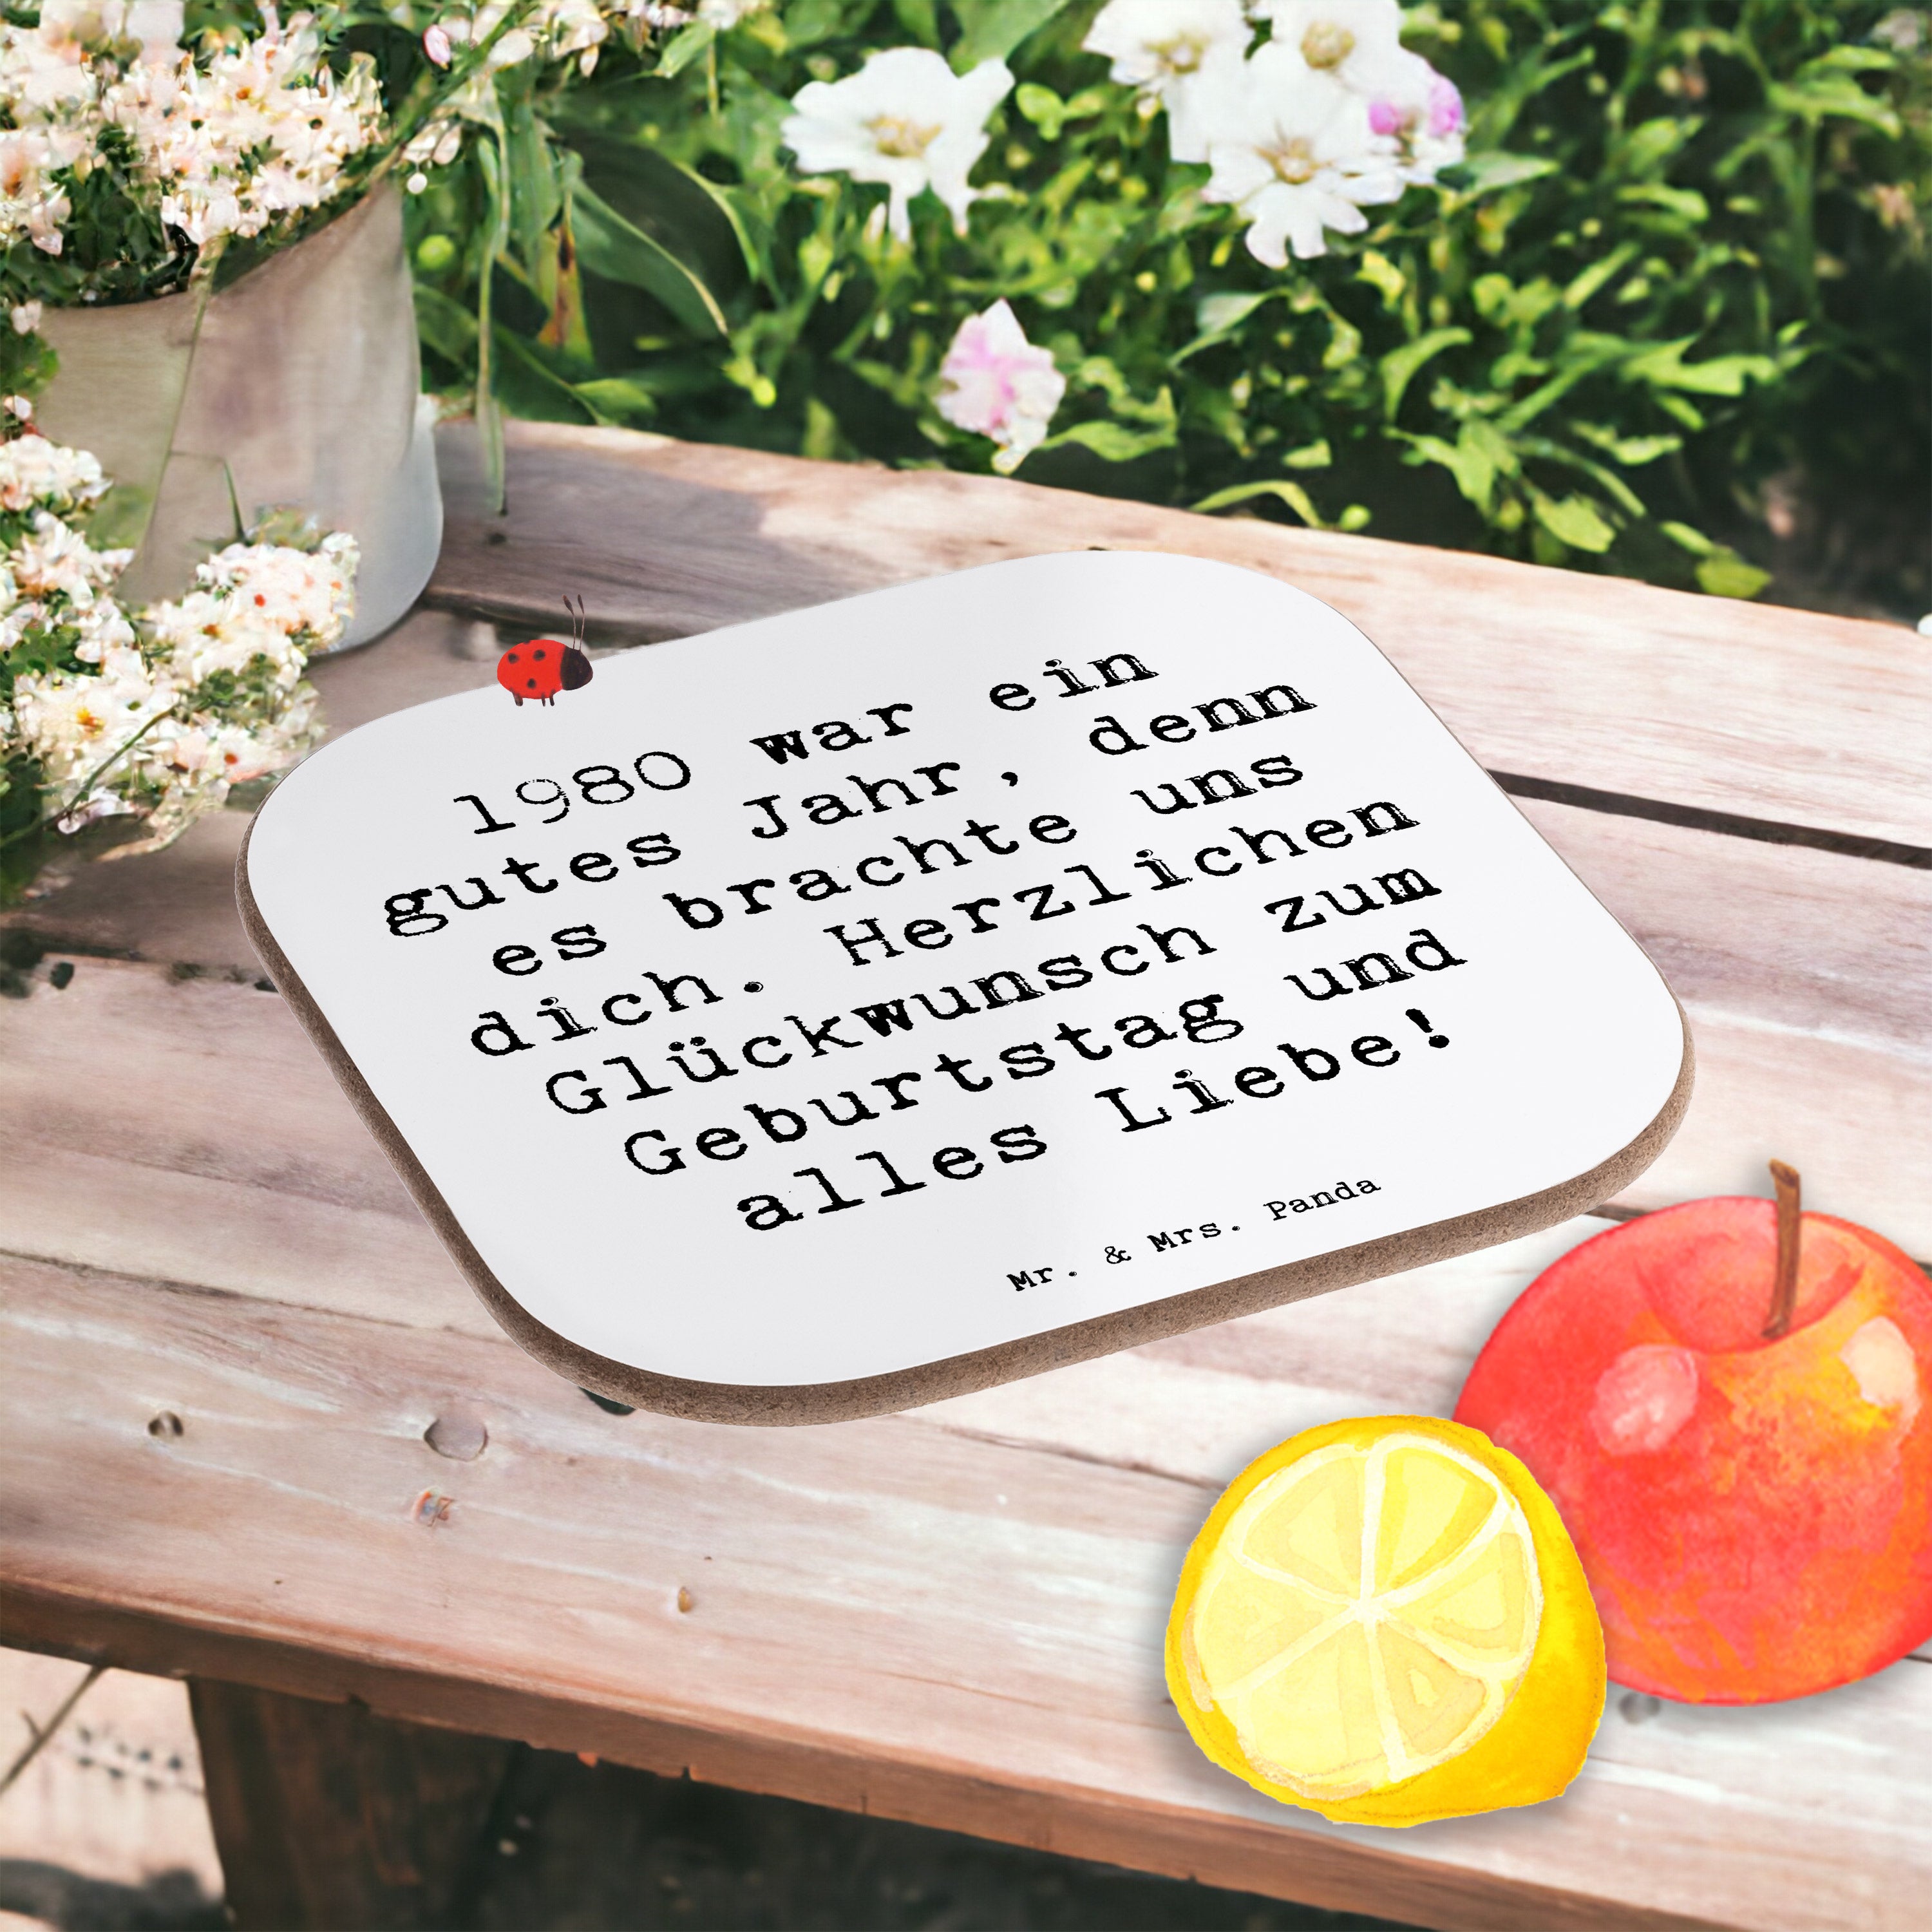 1980 war ein
gutes Jahr, denn
es brachte uns
dich. Herzlichen
Glückwunsch zum
Geburtstag und
alles Liebe!
Mr. & Mrs. Panda